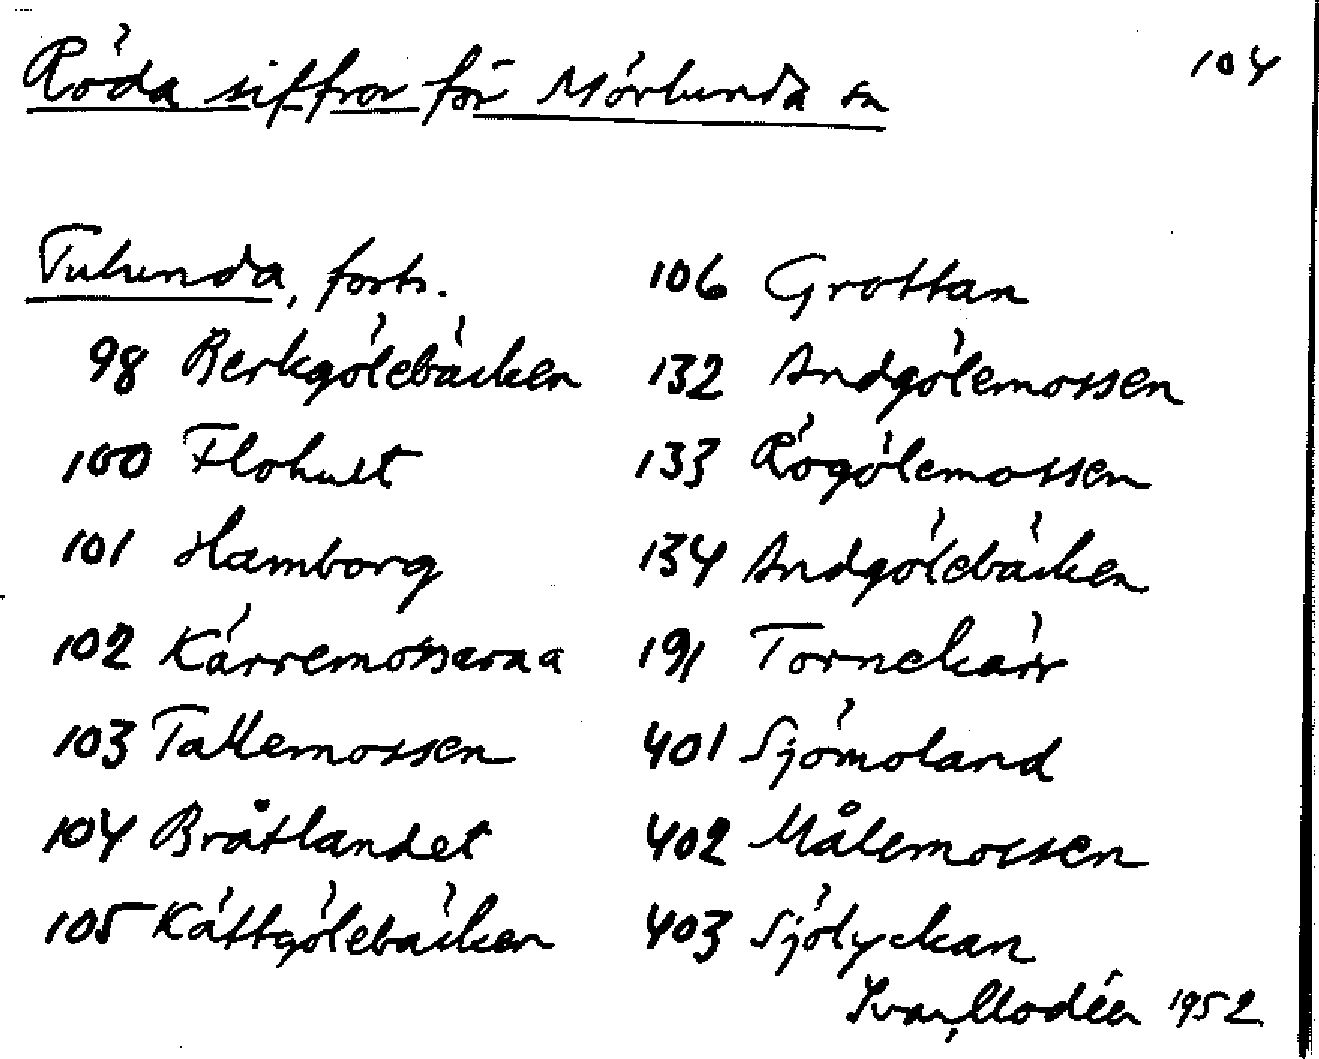 Röda siffror för Mörlunda sn
104
Tulunda, forts.
98 Berkgölebäcken
100 Flohult
101 Hamborg
102 Kärremossarna
103 Tallemossen
104 Bråtlandet
105 Kättgölebäcken
106 Grottan
132 Andgölemossen
133 Rögölemossen
134 Andgölebäcken
191 Tornekärr
401 Sjömoland
402 Målemossen
403 Sjölyckan
Ivar Modéer 1952